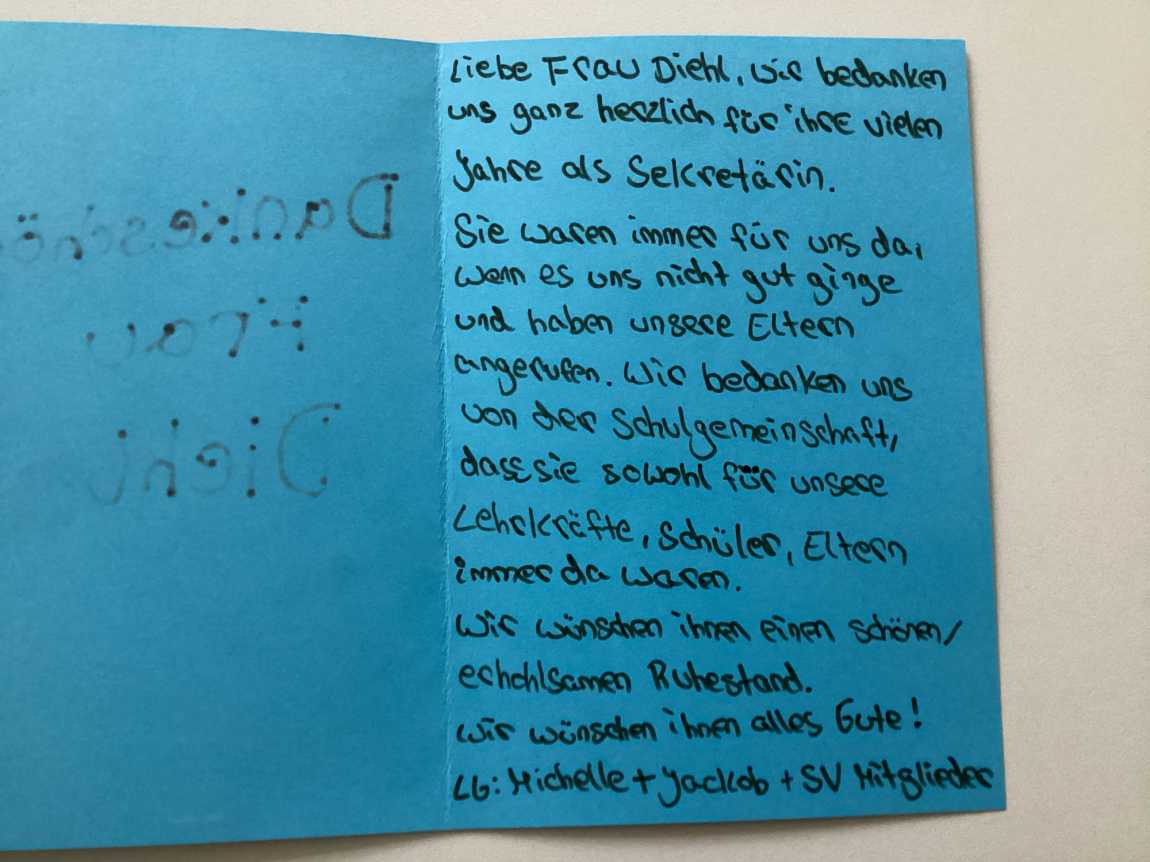 Dankeschö
Frau
Diehl
Liebe Frau Diehl, wir bedanken
uns ganz herzlich für ihre vielen
Jahre als Sekretärin.
Sie waren immer für uns da,
wenn es uns nicht gut ginge
und haben unsere Eltern
angerufen. Wir bedanken uns
von der Schulgemeinschaft,
dass sie sowohl für unsere
Lehrkräfte, Schüler, Eltern
immer da waren.
Wir wünschen ihnen einen schönen/
erhohlsamen Ruhestand.
Wir wünschen ihnen alles Gute!
LG: Michelle + Jackob + SV Mitglieder